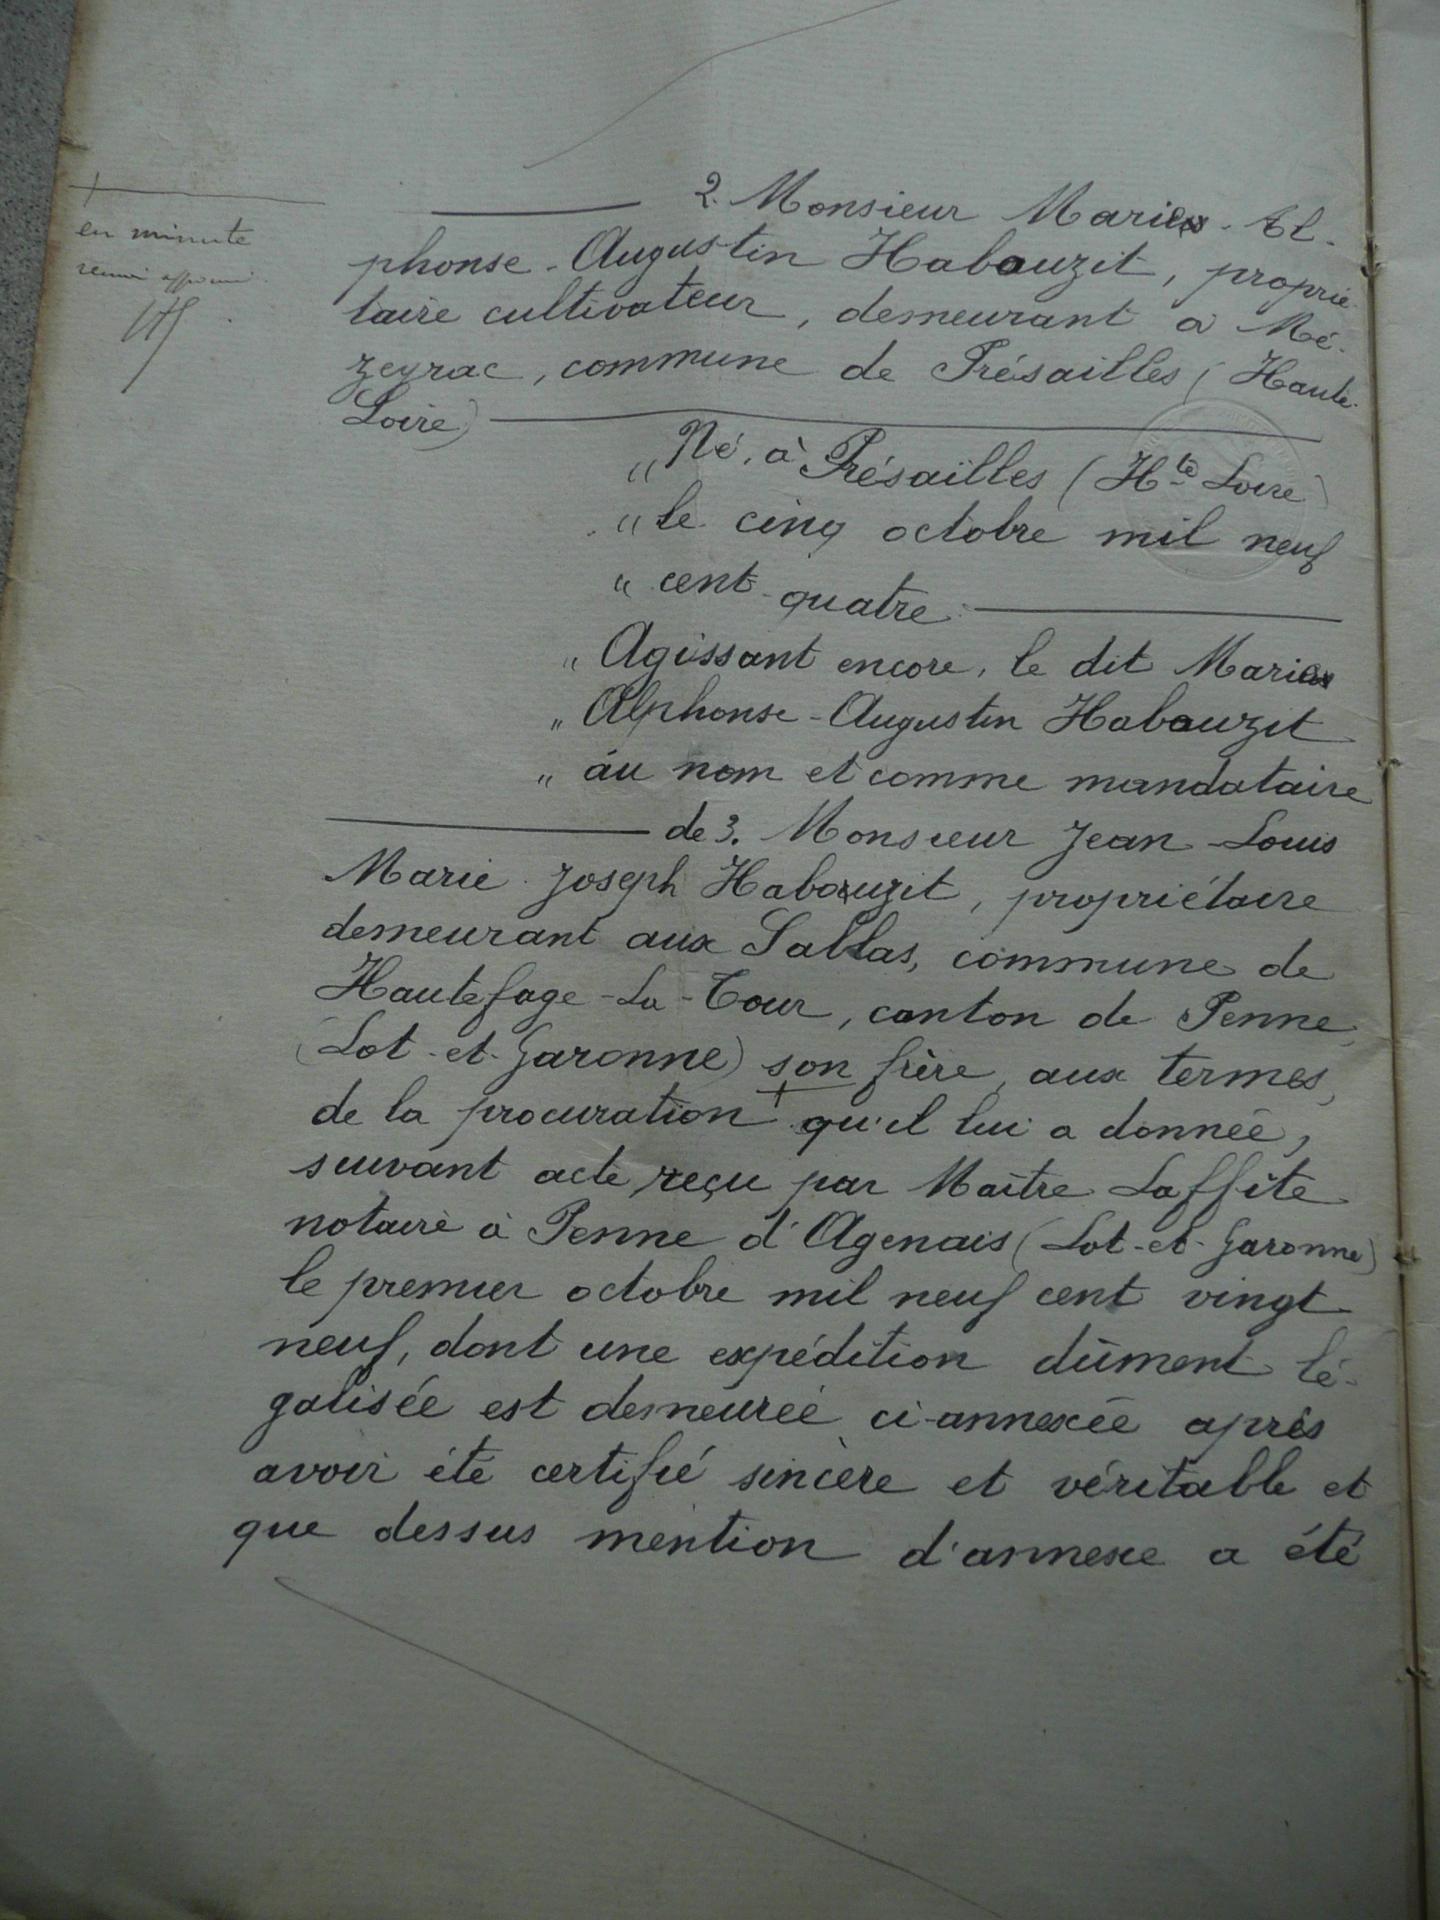 en minute
renvoi approuvé
2. Monsieur Marie - Al-
phonse - Augustin Habouzit, proprié-
taire cultivateur, demeurant à Mé-
zeyrac, commune de Présailles (Haute-
Loire)
" Né, à Présailles (Hte Loire)
" le cinq octobre mil neuf
" cent quatre
" Agissant encore, le dit Marie
" Alphonse - Augustin Habouzit
" au nom et comme mandataire
de 3. Monsieur Jean - Louis
Marie Joseph Habouzit, propriétaire
demeurant aux Sallas, commune de
Hautefage - La - Tour, canton de Penne,
(Lot - et - Garonne) son frère, aux termes,
de la procuration + qu'il lui a donnée,
suivant acte reçu par Maître Laffite
notaire à Penne d'Agenais (Lot - et - Garonne)
le premier octobre mil neuf cent vingt
neuf, dont une expédition dûment lé-
galisée est demeurée ci-annexée après
avoir été certifié sincère et véritable et
que dessus mention d'annexe a été